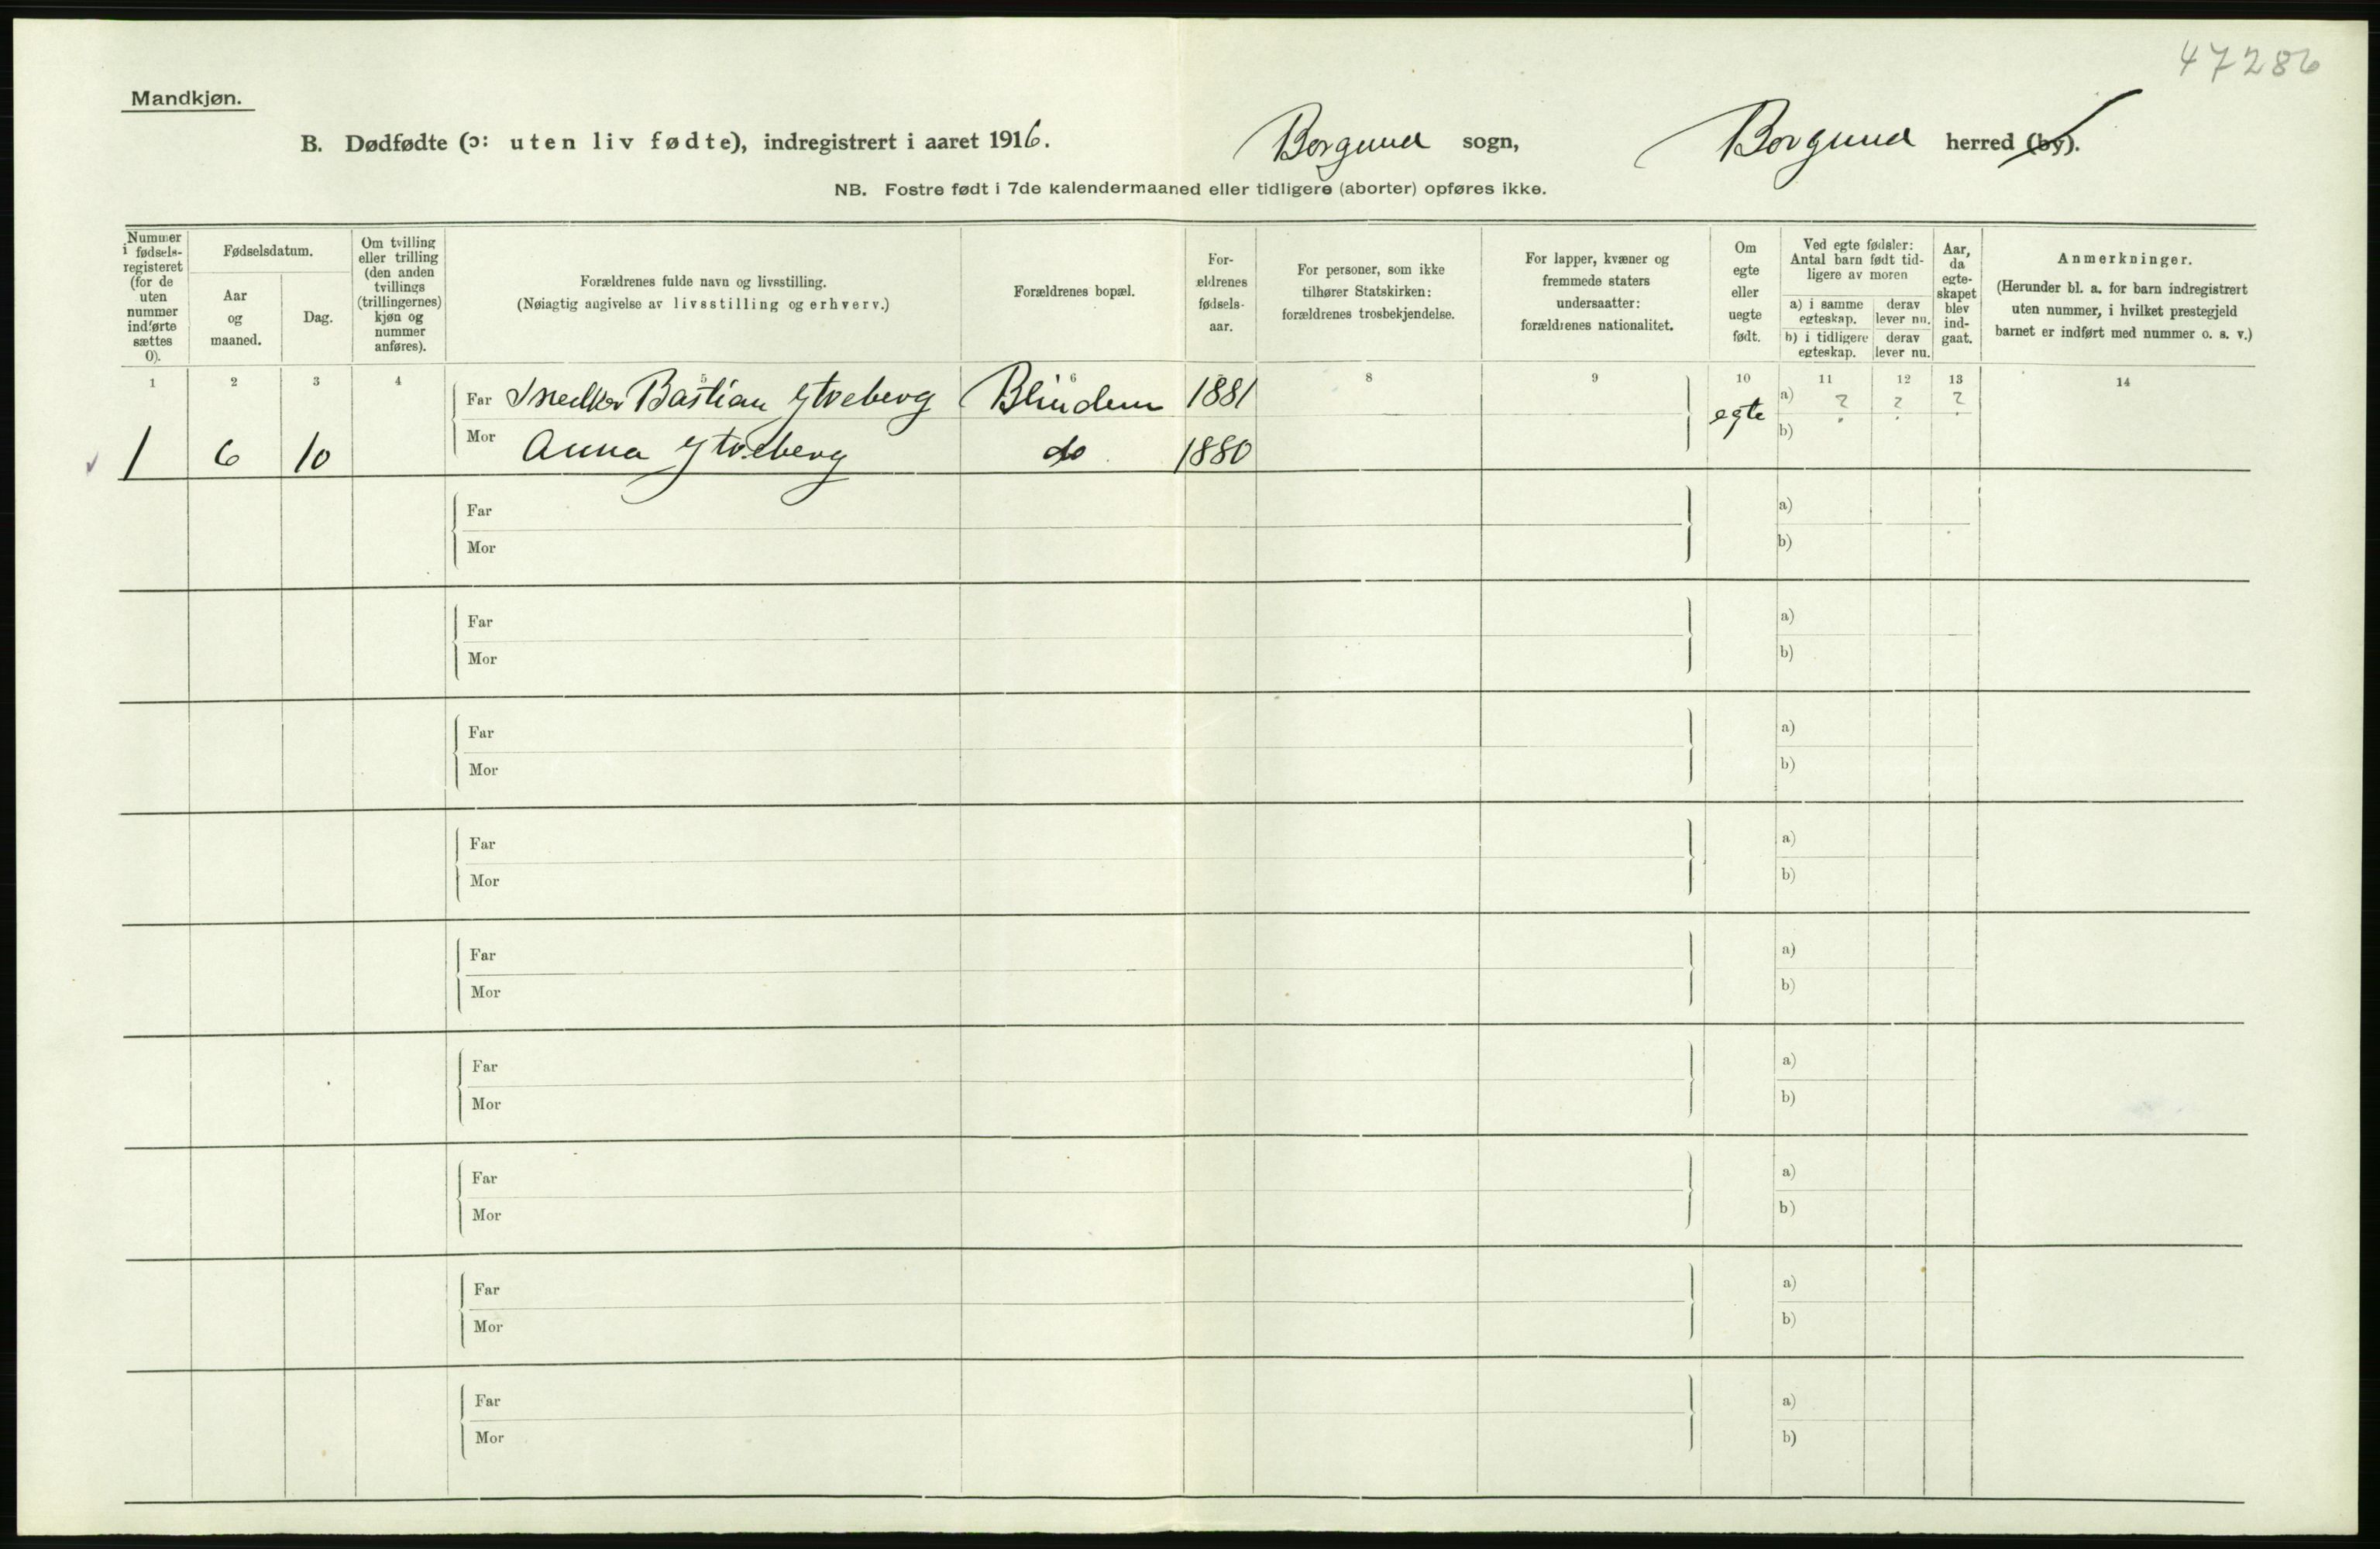 47286
Mandkjøn.
B. Dødfødte (ɔ: uten liv fødte), indregistrert i aaret 1916. Borgund sogn, Borgund herred (by).
NB. Fostre født i 7de kalendermaaned eller tidligere (aborter) opføres ikke.
Nummer i fødsels-registeret (for de uten nummer indførte sættes 0).
Fødselsdatum.
Aar og maaned.
Dag.
Om tvilling eller trilling (den anden tvillings (trillingernes) kjøn og nummer anføres).
Forældrenes fulde navn og livsstilling.
(Nøiagtig angivelse av livsstilling og erhverv.)
Forældrenes bopæl.
For-ældrenes fødsels-aar.
For personer, som ikke tilhører Statskirken: forældrenes trosbekjendelse.
For lapper, kvæner og fremmede staters undersaatter: forældrenes nationalitet.
Om egte eller uegte født.
Ved egte fødsler: Antal barn født tid-ligere av moren
a) i samme egteskap.
derav lever nu.
b) i tidligere egteskap.
derav lever nu.
Aar, da egte-skapet blev ind-gaat.
Anmerkninger.
(Herunder bl. a. for barn indregistrert uten nummer, i hvilket prestegjeld barnet er indført med nummer o. s. v.)
1 2 3 4 5 6 7 8 9 10 11 12 13 14
Far Snedker Bastian Ytreberg Blindem 1881 egte a) ? ? ?
1 6 10 Mor Anna Ytreberg do 1880 b)
Far a)
Mor b)
Far a)
Mor b)
Far a)
Mor b)
Far a)
Mor b)
Far a)
Mor b)
Far a)
Mor b)
Far a)
Mor b)
Far a)
Mor b)
Far a)
Mor b)